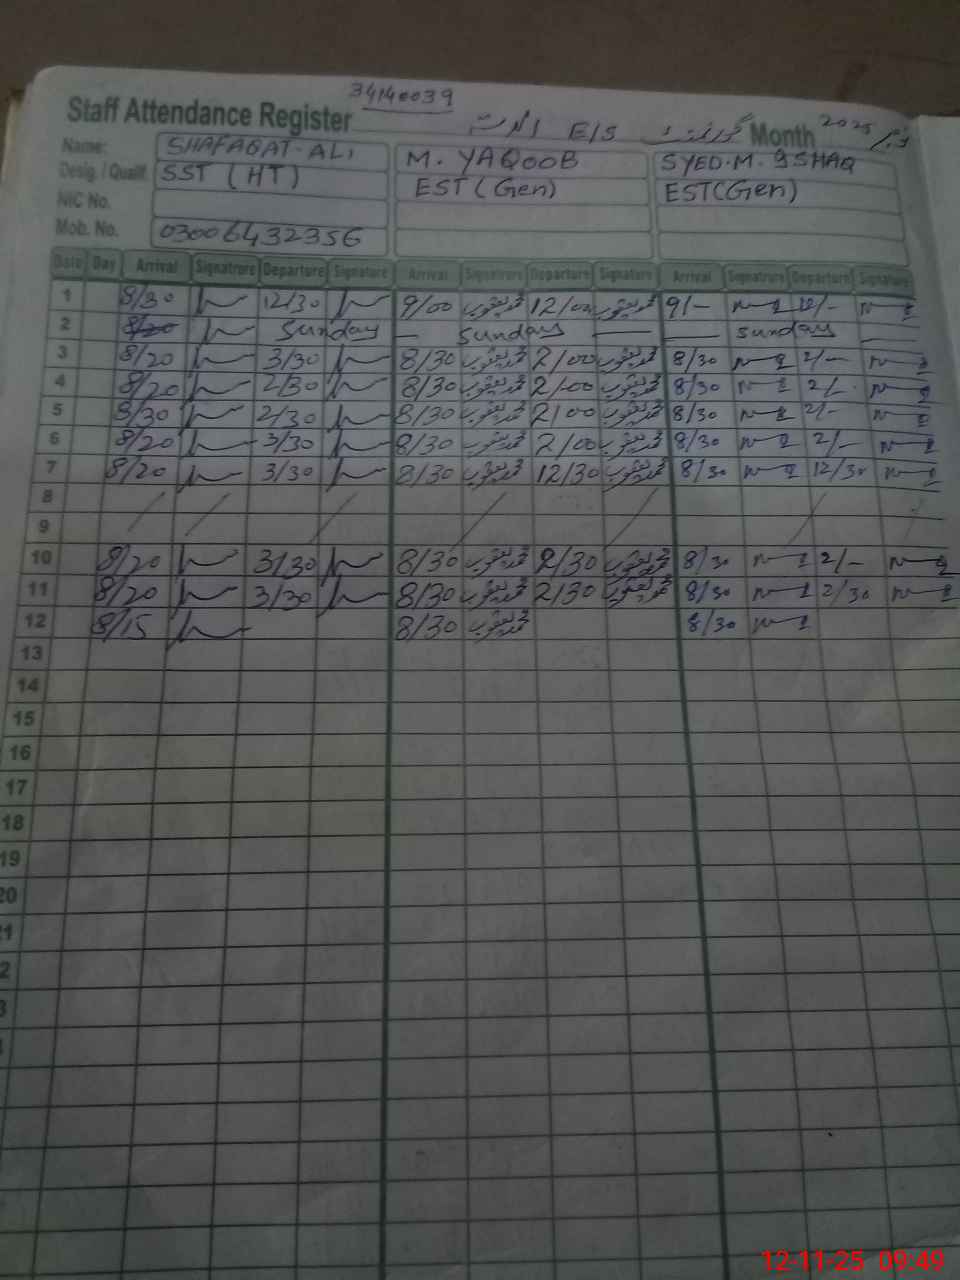 34140039
Staff Attendance Register E/S Month 2025
Name: SHAFAQAT-ALI M. YAQOOB SYED.M.ISHAQ
Desig. / Qualif. SST (HT) EST (Gen) EST(Gen)
NIC No.
Mob. No. 03006432356
Date Day Arrival Signatrure Departure Signature Arrival Signatrure Departure Signature Arrival Signatrure Departure Signature
1 8/30 12/30 9/00 محمد یعقوب 12/00 محمد یعقوب 9/- 12/-
2 8/20 Sunday Sunday Sunday
3 8/20 3/30 8/30 محمد یعقوب 2/00 محمد یعقوب 8/30 2/-
4 8/20 2/30 8/30 محمد یعقوب 2/00 محمد یعقوب 8/30 2/-
5 8/30 2/30 8/30 محمد یعقوب 2/00 محمد یعقوب 8/30 2/-
6 8/20 3/30 8/30 محمد یعقوب 2/00 محمد یعقوب 8/30 2/-
7 8/20 3/30 8/30 محمد یعقوب 12/30 محمد یعقوب 8/30 12/30
8
9
10 8/20 3/30 8/30 محمد یعقوب 2/30 محمد یعقوب 8/30 2/-
11 8/20 3/30 8/30 محمد یعقوب 2/30 محمد یعقوب 8/30 2/30
12 8/15 8/30 محمد یعقوب 8/30
13
14
15
16
17
18
19
20
12-11-25 09:49